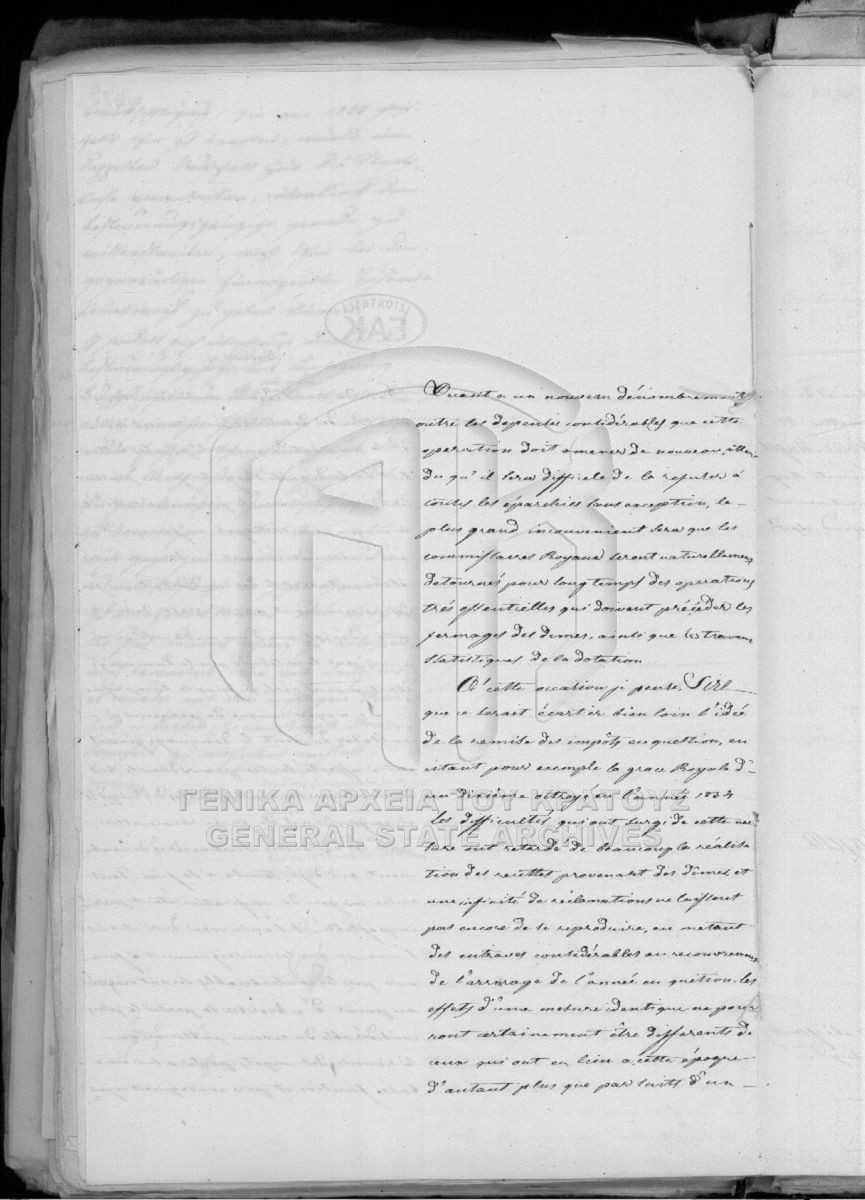 Quant a un nouveau dénombrement,
outre les depenses considérables que cette
operation doit amener de nouveau, atten
du qu'il sera difficile de la refuser à
toutes les éparchies sans exception, le
plus grand inconvenient sera que les
commissaires Royaux seront naturellement
detournés pour long temps des operations
très essentielles qui doivent précéder les
fermages des dimes, ainsi que les travaux
statistiques de la dotation
A' cette occasion je pense, Sire
que ce serait écarter bien loin l'idée
de la remise des impôts en question, en
citant pour exemple la grace Royale d'
un dixième octroyé en l'année 1834
les difficultés qui ont surgi de cette me-
sure ont retardé de beaucoup la réalisa
tion des recettes provenant des dîmes, et
une infinité de réclamations ne laissent
pas encore de se reproduire, en metant
des entraves considérables au recouvrement
de l'arrierage de l'année en quétion. les
effets d'une mesure identique ne pour
ront certainement être differents de
ceux qui ont eu lieu a cette époque
d'autant plus que par suite d'un
ΓΕΝΙΚΑ ΑΡΧΕΙΑ ΤΟΥ ΚΡΑΤΟΥΣ
GENERAL STATE ARCHIVES